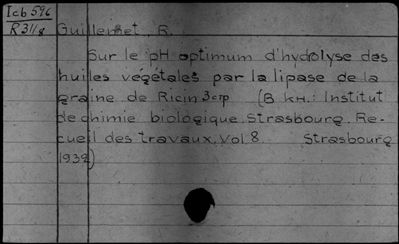 Icb 596
R 311g Guillemet, R.
Sur le pH optimum d'hydolyse des
huiles végétales par la lipase de la
graine de Ricin 3 стр (В кн.: Institut
de chimie biologique. Strasbourg. Re-
cueil des travaux. Vol 8. Strasbourg
1939)